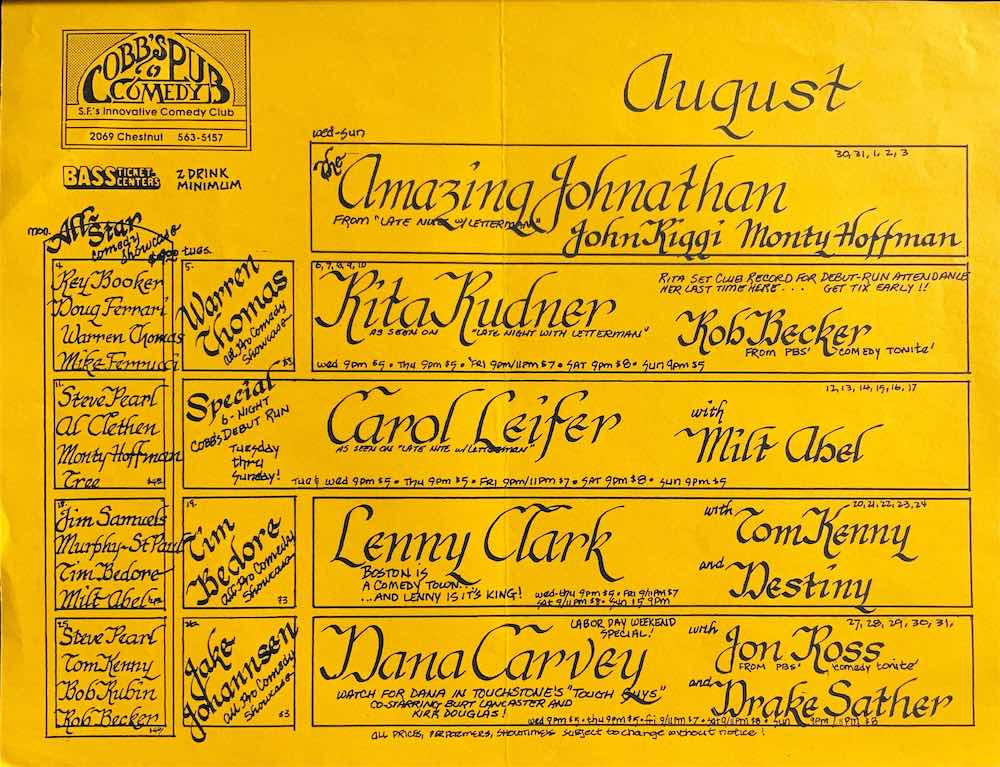 COBB'S PUB
COMEDY
S.F.'s Innovative Comedy Club
2069 Chestnut 563-5157
BASS TICKET CENTERS
2 DRINK
MINIMUM
August
wed-sun
30, 31, 1, 2, 3
The Amazing Johnathan
FROM "LATE NITE w/LETTERMAN"
John Riggi Monty Hoffman
mon.
All-Star
comedy
showcase
tues.
4.
Rey Booker
Doug Ferrari
Warren Thomas
Mike Ferrucci
5.
Warren
Thomas
all Pro Comedy
Showcase
$3
6, 7, 8, 9, 10
Rita Rudner
AS SEEN ON "LATE NIGHT WITH LETTERMAN"
RITA SET CLUB RECORD FOR DEBUT-RUN ATTENDANCE
HER LAST TIME HERE... GET TIX EARLY!!
Rob Becker
FROM PBS' 'COMEDY TONITE'
wed 9pm $5 • Thu 9pm $5 • Fri 9pm/11pm $7 • SAT 9pm $8 • Sun 9pm $5
11.
Steve Pearl
Al Clethen
Monty Hoffman
Tree
Special
6-NIGHT
COBB'S DEBUT RUN
Tuesday
thru
Sunday!
12, 13, 14, 15, 16, 17
Carol Leifer
AS SEEN ON "LATE NITE w/LETTERMAN"
with
Milt Abel
Tue & wed 9pm $5 • Thu 9pm $5 • Fri 9pm/11pm $7 • SAT 9pm $8 • Sun 9pm $5
18.
Jim Samuels
Murphy-St Paul
Tim Bedore
Milt Abel
19.
Tim
Bedore
all Pro Comedy
Showcase
$3
20, 21, 22, 23, 24
Lenny Clark
BOSTON IS
A COMEDY TOWN...
...AND LENNY IS IT'S KING!
with Tom Kenny
and Destiny
wed-thu 9pm $5 • Fri 9/11pm $7
Sat 9/11 pm $8 • Sun 9pm
25.
Steve Pearl
Tom Kenny
Bob Rubin
Rob Becker
26.
Jake
Johannsen
all Pro Comedy
Showcase
$3
27, 28, 29, 30, 31,
Dana Carvey
LABOR DAY WEEKEND
SPECIAL!
WATCH FOR DANA IN TOUCHSTONE'S "TOUGH GUYS"
CO-STARRING BURT LANCASTER AND
KIRK DOUGLAS!
with Jon Ross
FROM PBS' 'comedy tonite'
and Drake Sather
wed 9pm $5 • thu 9pm $5 • fri 9/11pm $7 • sat 9/11pm $8 • sun 9pm/11pm $8
ALL PRICES, PERFORMERS, SHOWTIMES SUBJECT TO CHANGE WITHOUT NOTICE!